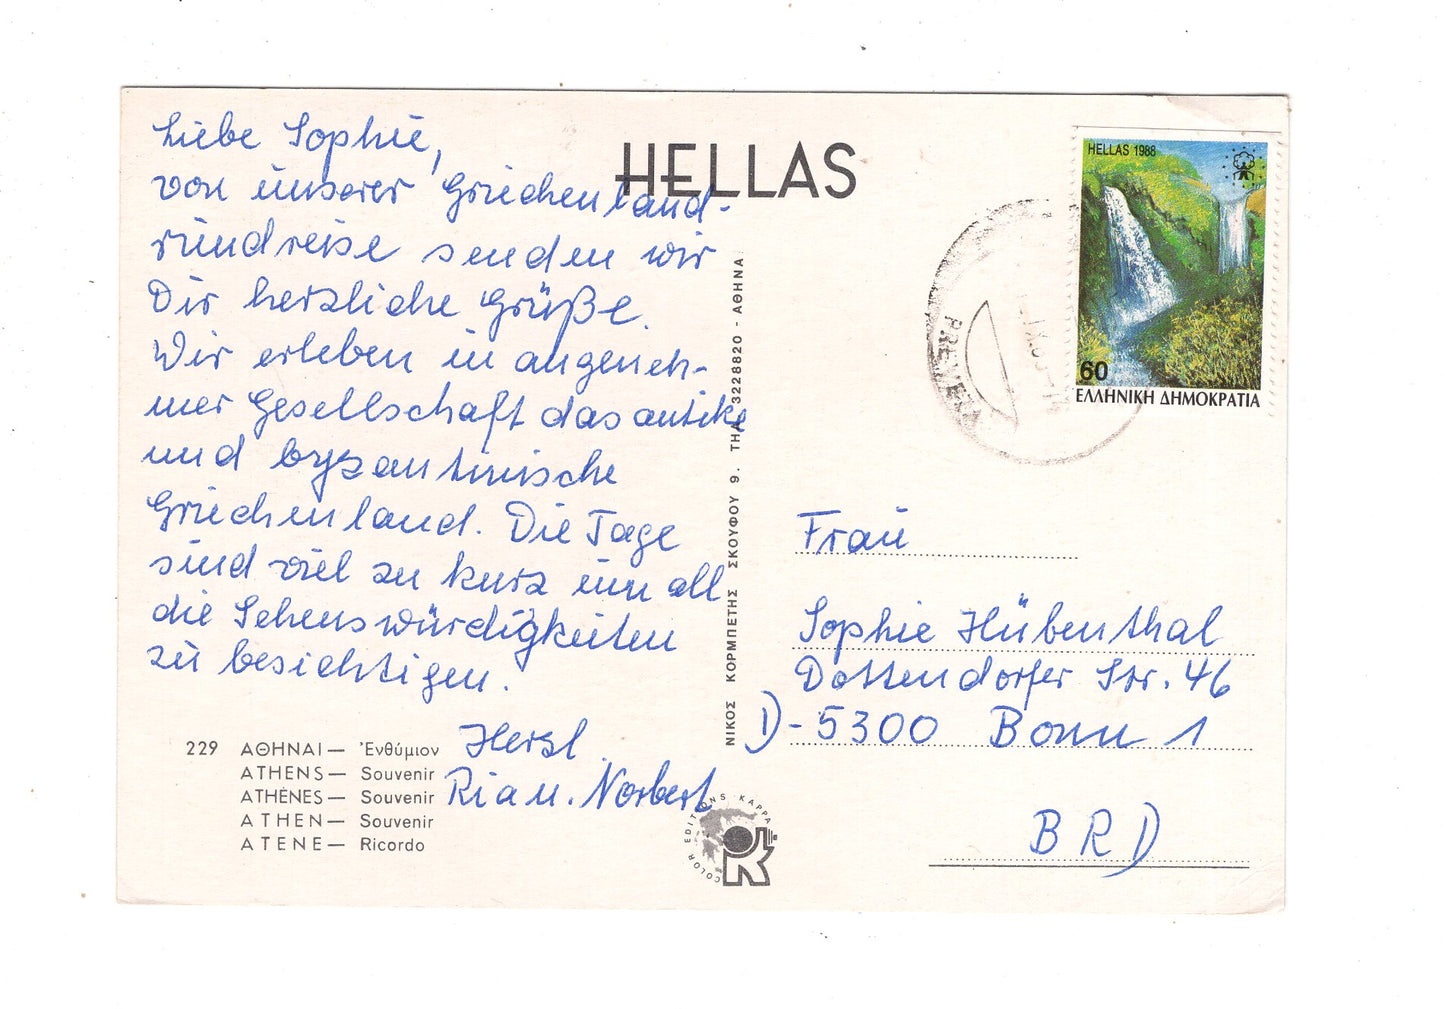 Liebe Sophie,
von unserer Griechenland-
rundreise senden wir
Dir herzliche Grüße.
Wir erleben in angeneh-
mer Gesellschaft das antike
und byzantinische
Griechenland. Die Tage
sind viel zu kurz um all
die Sehenswürdigkeiten
zu besichtigen.
Herzl.
Ria u. Norbert
229 ΑΘΗΝΑΙ — Ἐνθύμιον
ATHENS — Souvenir
ATHÈNES — Souvenir
ATHEN — Souvenir
ATENE — Ricordo
HELLAS
ΝΙΚΟΣ ΚΟΡΜΠΕΤΗΣ ΣΚΟΥΦΟΥ 9. ΤΗΛ. 3228820 - ΑΘΗΝΑ
COLOR EDITIONS KAPPA
HELLAS 1988
60
ΕΛΛΗΝΙΚΗ ΔΗΜΟΚΡΑΤΙΑ
PREVEZA
Frau
Sophie Hübenthal
Dottendorfer Str. 46
D-5300 Bonn 1
BRD